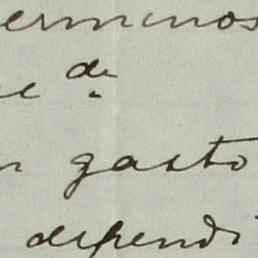 erminos
de
gasto
dependi